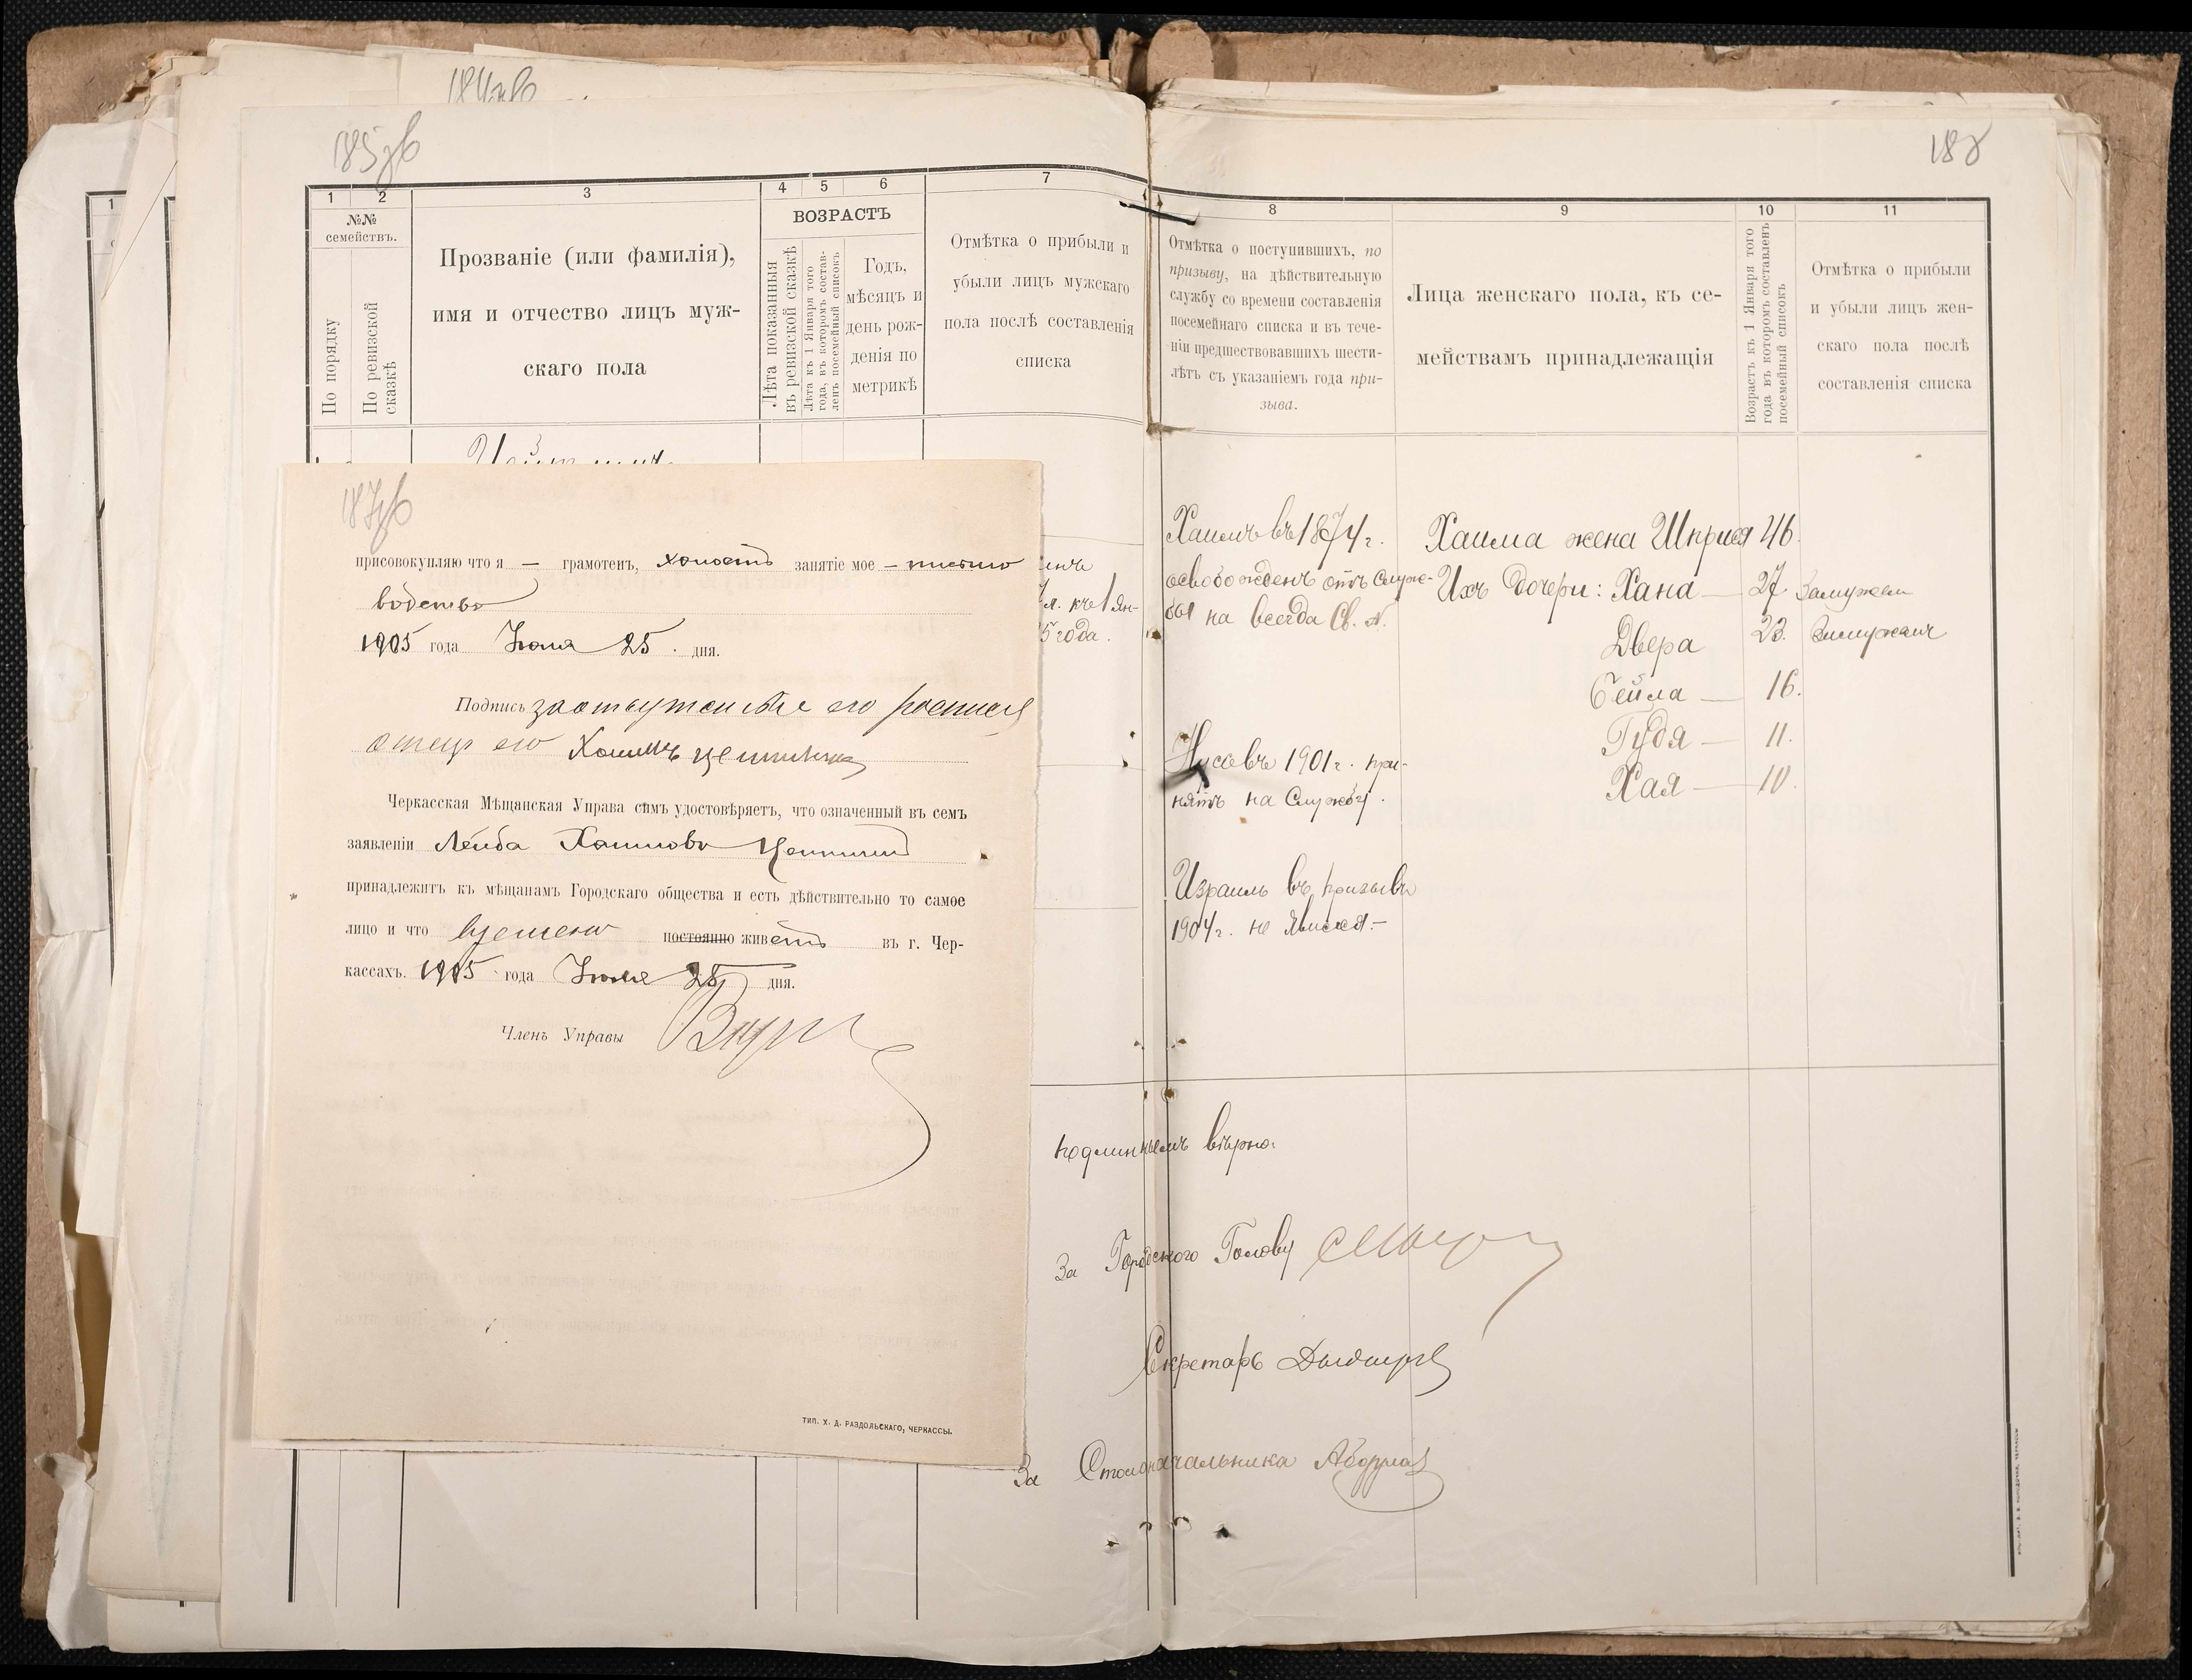 185об
1
2
3
4
5
6
7
№№
семействъ.
По порядку
По ревизской
сказкѣ
Прозваніе (или фамилія),
имя и отчество лицъ муж-
скаго пола
ВОЗРАСТЪ
Лѣта показанныя
въ ревизской сказкѣ
Лѣта къ 1 Января того
года, въ которомъ состав-
ленъ посемейный списокъ
Годъ,
мѣсяцъ и
день рож-
денія по
метрикѣ
Отмѣтка о прибыли и
убыли лицъ мужскаго
пола послѣ составленія
списка
л. къ 1 Ян-
5 года.
187об
присовокупляю что я — грамотенъ, холостъ занятіе мое —
водство
1905 года Іюля 25. дня.
Подпись за отсутствіе его росписа
отецъ его Хаимъ
Черкасская Мѣщанская Управа симъ удостовѣряетъ, что означенный въ семъ
заявленіи Лейба Хаимовъ
принадлежитъ къ мѣщанамъ Городскаго общества и есть дѣйствительно то самое
лицо и что времено постоянно живетъ въ г. Чер-
кассахъ. 1905 года Іюля 25 дня.
Членъ Управы
ТИП. Х. Д. РАЗДОЛЬСКАГО, ЧЕРКАССЫ.
188
8
9
10
11
Отмѣтка о поступившихъ, по
призыву, на дѣйствительную
службу со времени составленія
посемейнаго списка и въ тече-
ніи предшествовавшихъ шести-
лѣтъ съ указаніемъ года при-
зыва.
Лица женскаго пола, къ се-
мействамъ принадлежащія
Возрастъ къ 1 Января того
года въ которомъ составленъ
посемейный списокъ
Отмѣтка о прибыли
и убыли лицъ жен-
скаго пола послѣ
составленія списка
Хаимъ въ 1874 г.
освобожденъ отъ служ-
бы на всегда Св. №.
Нусъ въ 1901 г. при-
нятъ на Службу.
Израиль въ призывъ
1904 г. не явился.—
Хаима жена 46.
Ихъ дочери: Хана — 27 Замужем
Двера 23. Замужемъ
Бейла — 16.
Гудя — 11.
Хая — 10.
подлиннымъ вѣрно:
За Городского Голову
Секретарь
За Столоначальника